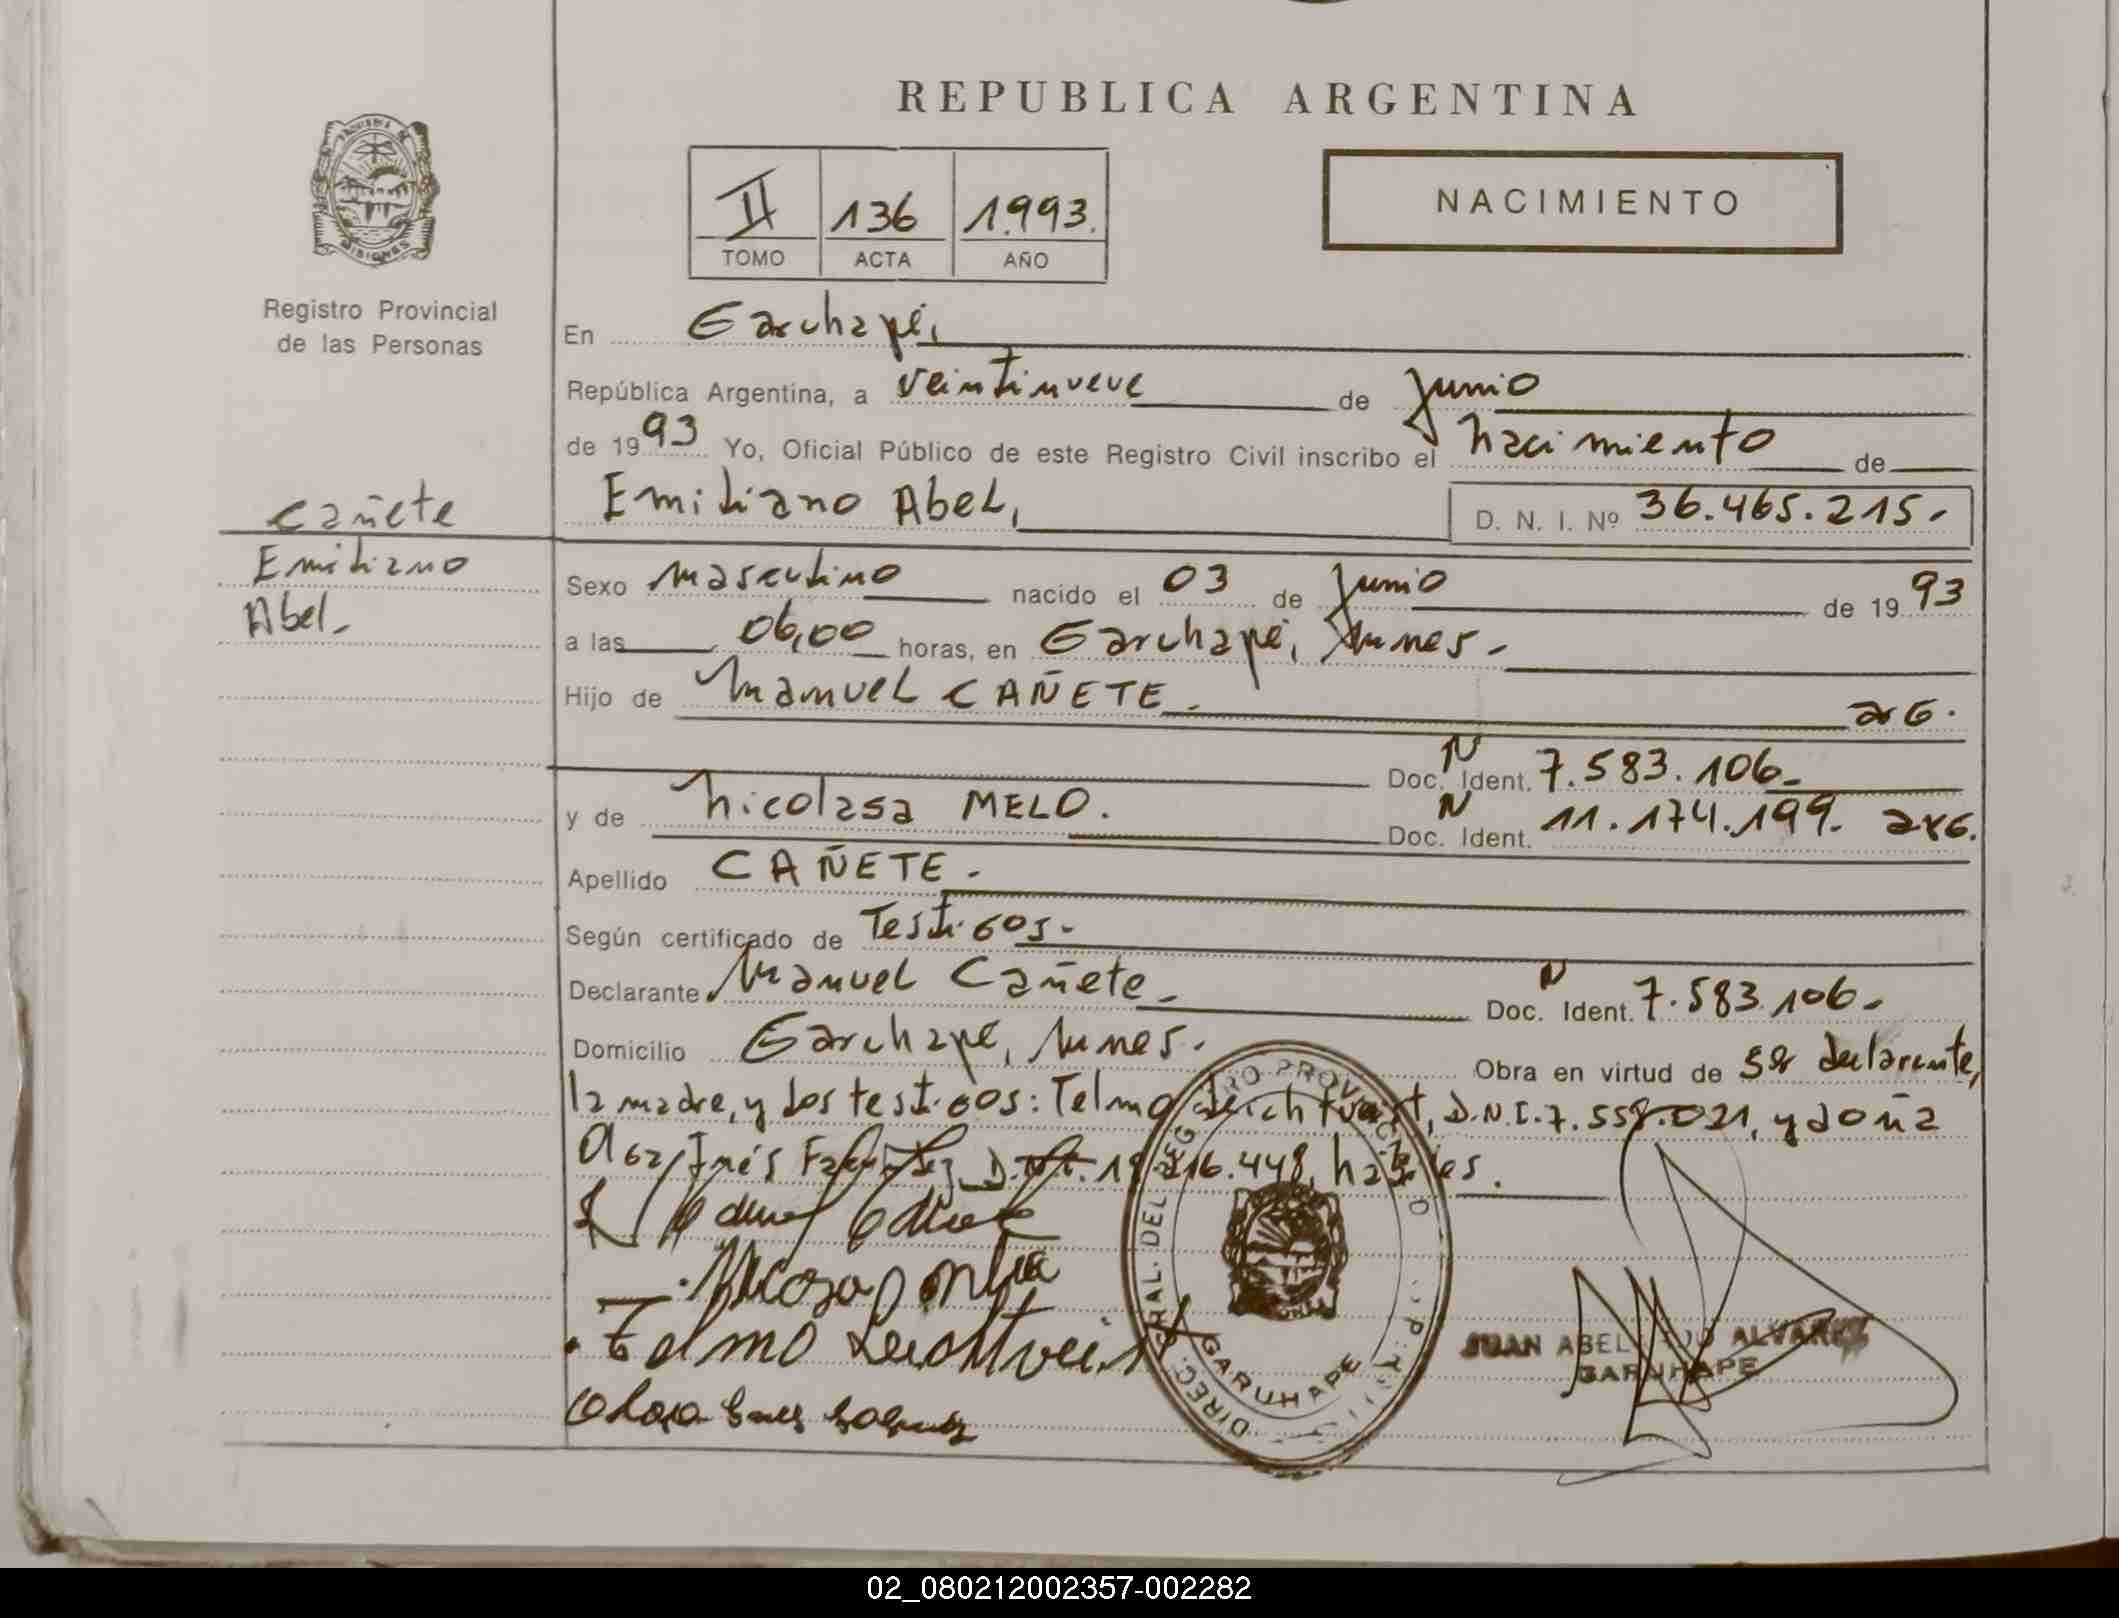 REPUBLICA ARGENTINA
PROVINCIA DE MISIONES
Registro Provincial
de las Personas
II 136 1.993.
TOMO ACTA AÑO
NACIMIENTO
En Garuhapé,
República Argentina, a veintinueve de Junio
de 1993 Yo, Oficial Público de este Registro Civil inscribo el Nacimiento de
Emiliano Abel, D. N. I. Nº 36.465.215.-
Cañete
Emiliano
Abel.-
Sexo Masculino nacido el 03 de Junio de 1993
a las 06,00 horas, en Garuhapé, Mnes.-
Hijo de Manuel CAÑETE.- arG.
N
Doc. Ident. 7.583.106.-
y de Nicolasa MELO. N Doc. Ident. 11.174.199. arG.
Apellido CAÑETE.-
Según certificado de Testigos.-
Declarante Manuel Cañete.- N Doc. Ident. 7.583.106.-
Domicilio Garuhapé, Mnes.- Obra en virtud de ser declarante,
la madre, y los testigos: Telmo D.N.I. 7.558.021, y doña
Inés D.N.I. 448, hábiles.
Telmo
DIREC. GRAL. DEL REGISTRO PROVINCIAL
GARUHAPE
JUAN ABEL ALVAREZ
GARUHAPE
02_080212002357-002282